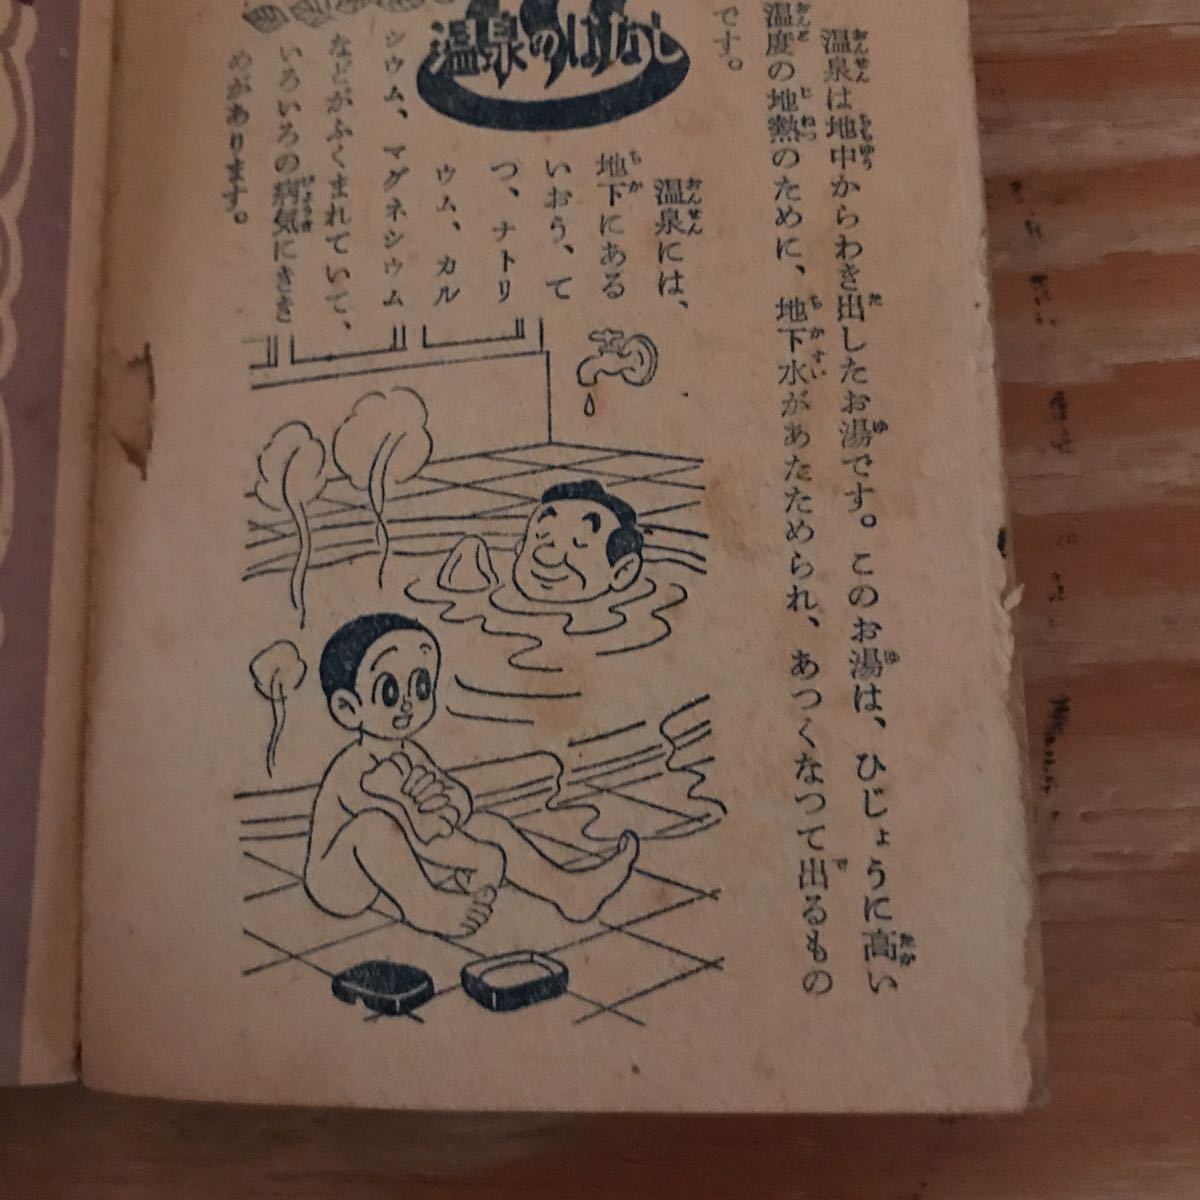 温泉のはなし
温泉は地中からわき出したお湯です。このお湯は、ひじょうに高い
温度の地熱のために、地下水があたためられ、あつくなって出るもの
です。
温泉には、
地下にある
いおう、て
つ、ナトリ
ウム、カル
シウム、マグネシウム
などがふくまれていて、
いろいろの病気にきき
めがあります。